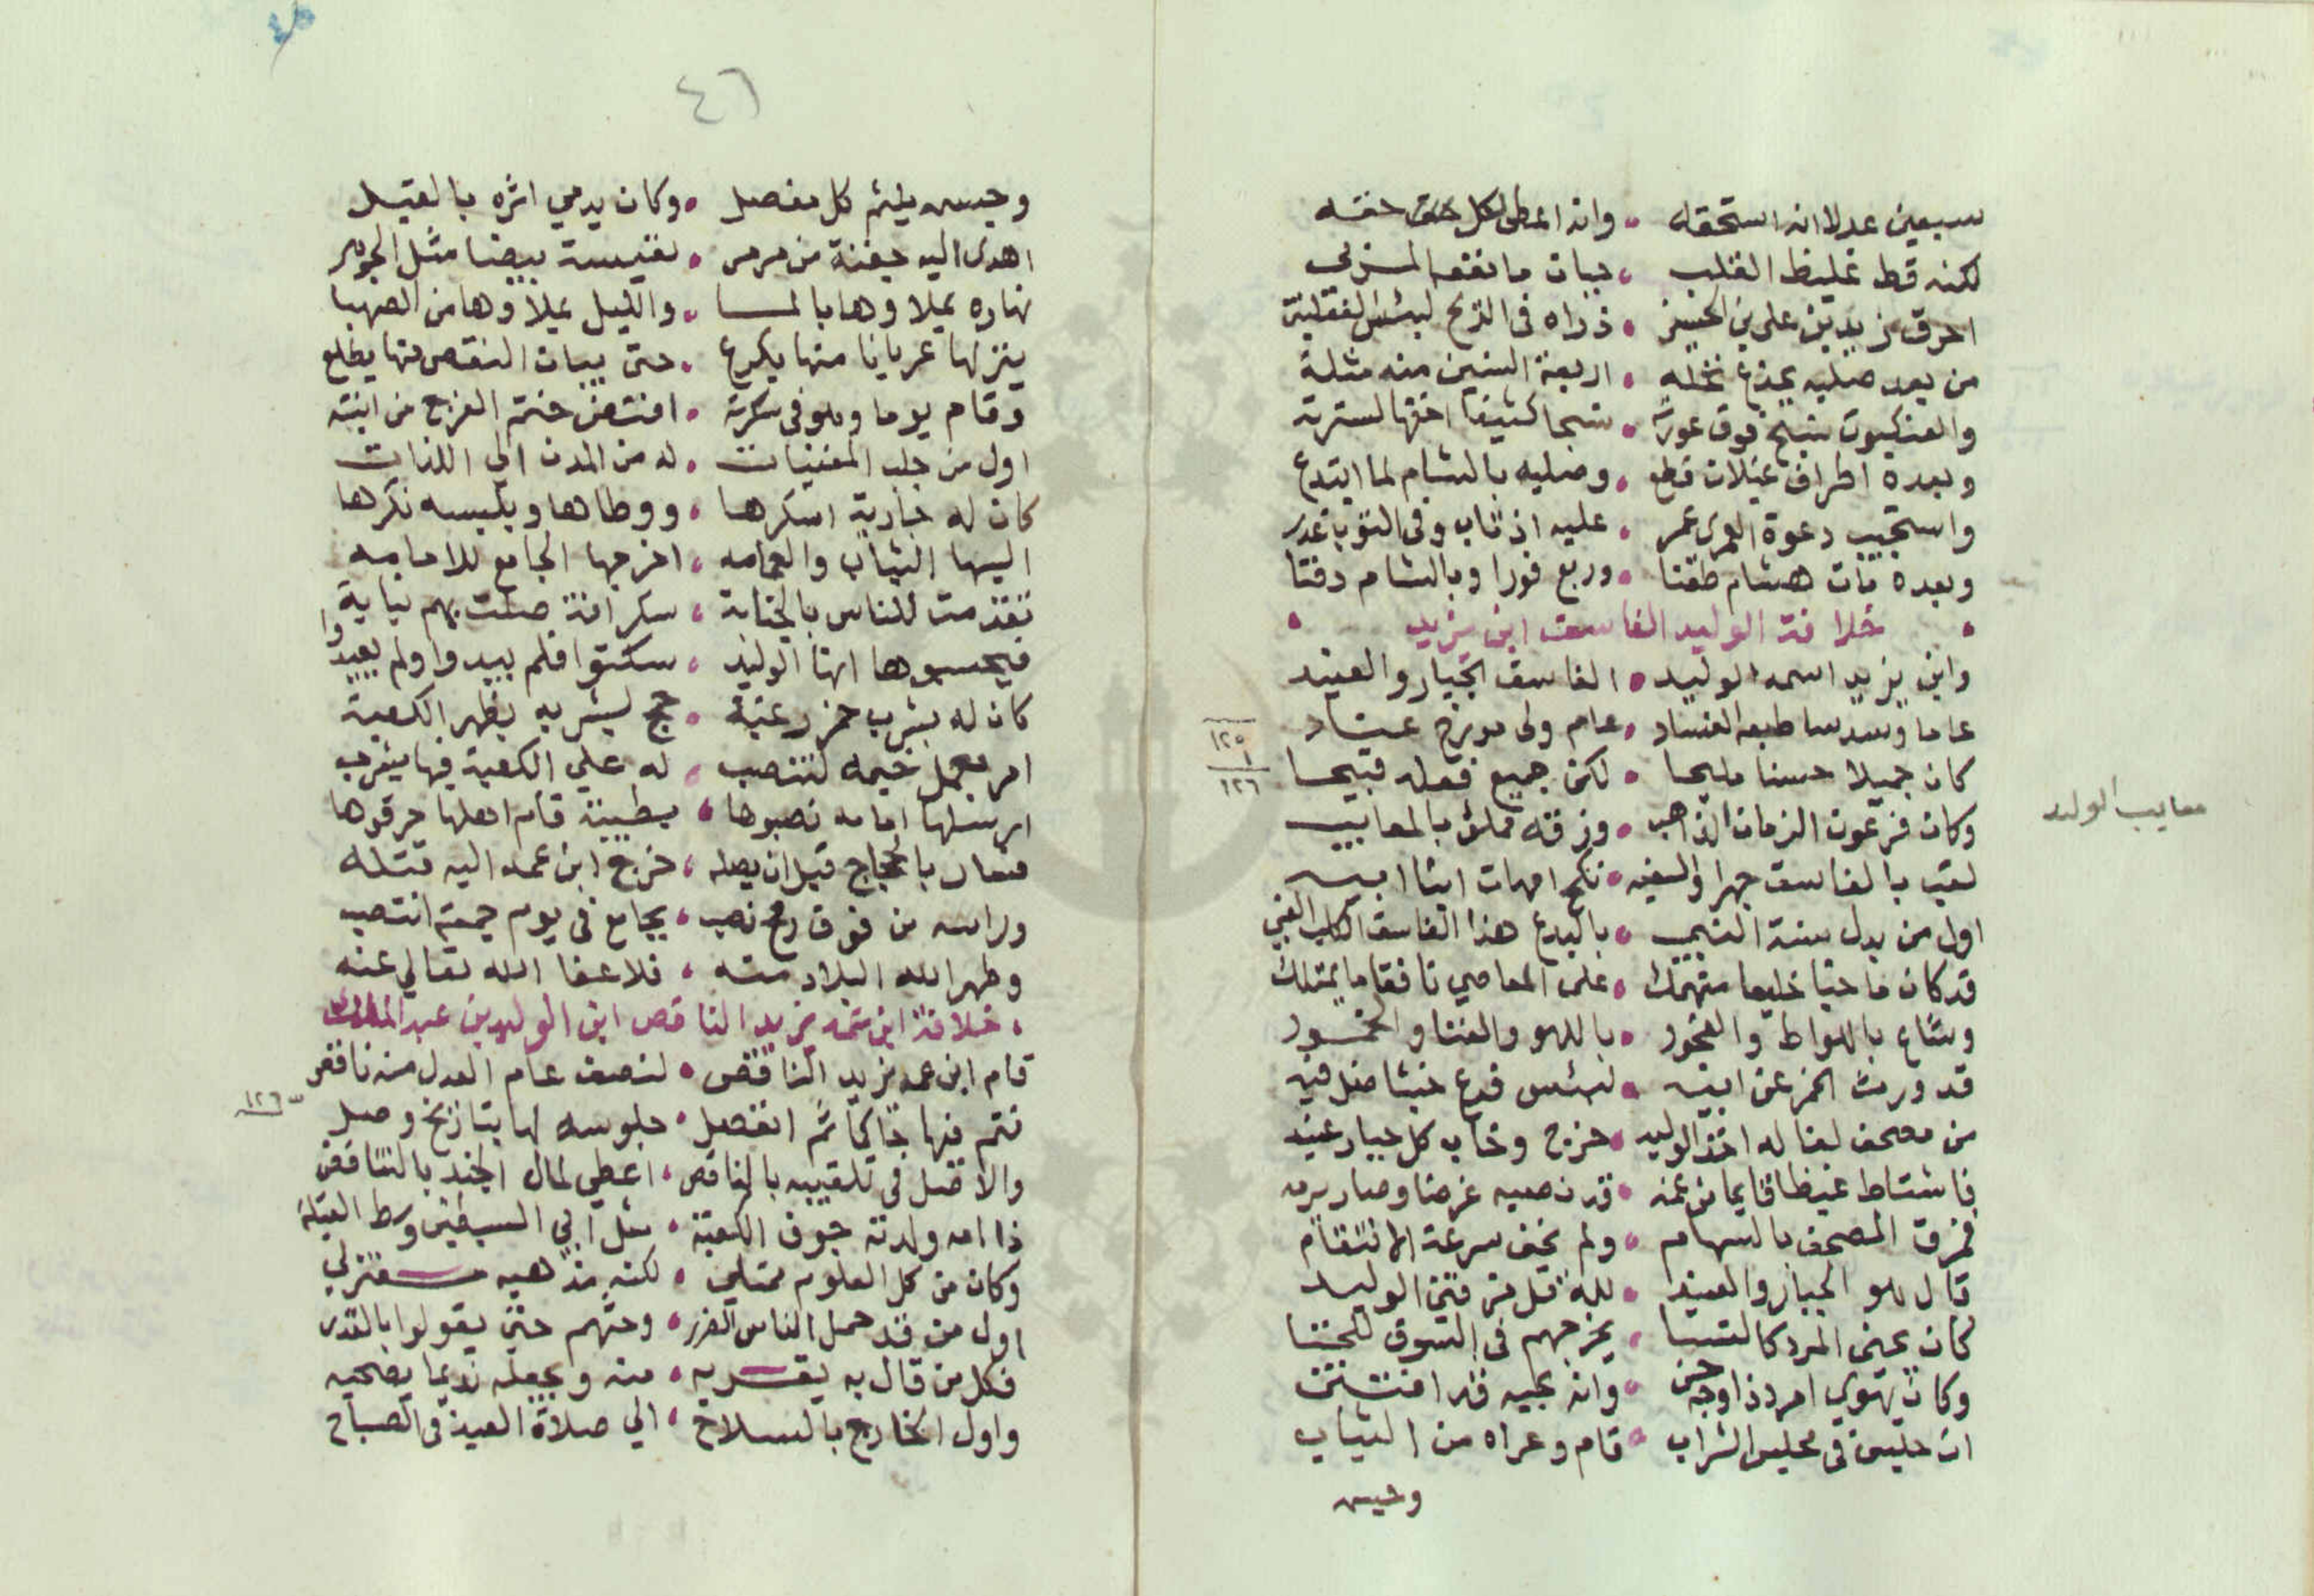 سبعين عدلا انه استحقه ۰ وانه اعطى لكل حق حقه
لكنه قط غليظ القلب ۰ جبات ما نفعه
احرق زيد بن على بن الحسين ۰ ذراه فى الريح لبئس
من بعد صلبه بجذع نخله ۰ اربعة السنين منه مثلة
والعنكبوت ينسج فوق عورته ۰ نسجا كثيفا اخفها لسترته
وبعده اطراف غيلان قطع ۰ وصلبه بالشام لما ابتدع
واستجيب دعوة العمرى عمر ۰ عليه اذ تاب وفى التوبة غدر
وبعده مات هشام طعنا ۰ وربع فورا وبالشام دفنا
۰ خلافة الوليد الفاسق ابن يزيد ۰
وابن يزيد اسمه الوليد ۰ الفاسق الجبار والعنيد
عاما وسدسا طبعه الفساد ۰ عام ولى مورخ عناد
١٢٥
١
١٢٦
كان جميلا حسنا مليحا ۰ لكن جميع فعله قبيحا
معايب الوليد
وكان فرعون الزمان الذاهب ۰ وزقه ملئ بالمعايب
لقب بالفاسق جهرا والسفيه ۰ نكح امهات ابنا ابيه
اول من بدل سنة النبى ۰ بالبدع هذا الفاسق الكلب الغبى
قد كان ماجنا خليعا منهمك ۰ على المعاصي نافقا ما يمتلك
وشاع باللواط والفجور ۰ باللهو والغنا والخمور
قد ورث الخمر عن ابيه ۰ لبئس فرع خبثا اصل فيه
من مصحف لفا له اخذ الوليد ۰ خرج وخاب كل جبار عنيد
فاشتاط غيظا قايما من عنه ۰ قد نصبه غرضا وصار يرمه
فمزق المصحف بالسهام ۰ ولم يخف سرعة الانتقام
قال هو الجبار والعنيد ۰ لله قل من فتى الوليد
كان يحنى المرد كالنسا ۰ يخرجهم فى السوق للخنا
وكان يهوي امرد ذا وجه حسن ۰ وانه بحبه قد افتتن
ان جلس فى مجلس الشراب ۰ قام وعراه من الثياب
وحبس
٤٦
وحبس يلثم كل مفصل ۰ وكان يدمي اثره بالقبل
اهدى اليه جفنة من مرمر ۰ نفيسة بيضا مثل الجوهر
نهاره يملاوها بالمسا ۰ والليل يملاوها من الصهبا
ينزلها عريانا منها يكرع ۰ حتى يبان النقص منها يطلع
وقام يوما وهو فى سكرته ۰ افتض ختم الفرج من ابنته
اول من جلب المغنيات ۰ له من المدن الي اللذات
كان له جارية اسكرها ۰ ووطاها وبلبسه نكرها
البسها الثياب والعمامه ۰ اخرجها الجامع للامامه
تقدمت للناس بالجنابة ۰ سكرانة صلت بهم نيابة
فيحسبوها انها الوليد ۰ سكتوا فلم يبدوا ولم يعيدوا
كان له بشرب خمر رغبة ۰ حج ليشربه بظهر الكعبة
امر بعمل خيمه لتنتصب ۰ له علي الكعبة فيها يشرب
ارسلها امامه نصبوها ۰ بطيبة قام اهلها حرقوها
فعاد بالحجاج قبل ان يصله ۰ خرج ابن عمه اليه قتله
وراسه من فوق رمح نصب ۰ بجامع فى يوم جمعة انتصب
وطهر الله البلاد منه ۰ فلا عفا الله تعالي عنه
۰ خلافة ابن عمه يزيد الناقص ابن الوليد بن عبد الملك
قام ابن عمه يزيد الناقص ۰ لنصف عام العدل منه ناقص
١٢٦
فتم فيها حاكما ثم انفصل ۰ جلوسه لها بتاريخ وصل
والاصل فى تلقيبه بالناقص ۰ اعطي لمال الجند بالتناقص
ذا امه ولدته جوف الكعبة ۰ مثل ابي السبطين وسط القبلة
وكان من كل العلوم ممتلي ۰ لكنه مذهبه معتزلي
اول من قد حمل الناس القدر ۰ وحثهم حتى يقولوا بالقدر
فكل من قال به يقربه ۰ منه ويجعله نديما يصحبه
واول الخارج بالسلاح ۰ الي صلاة العيد فى الصباح